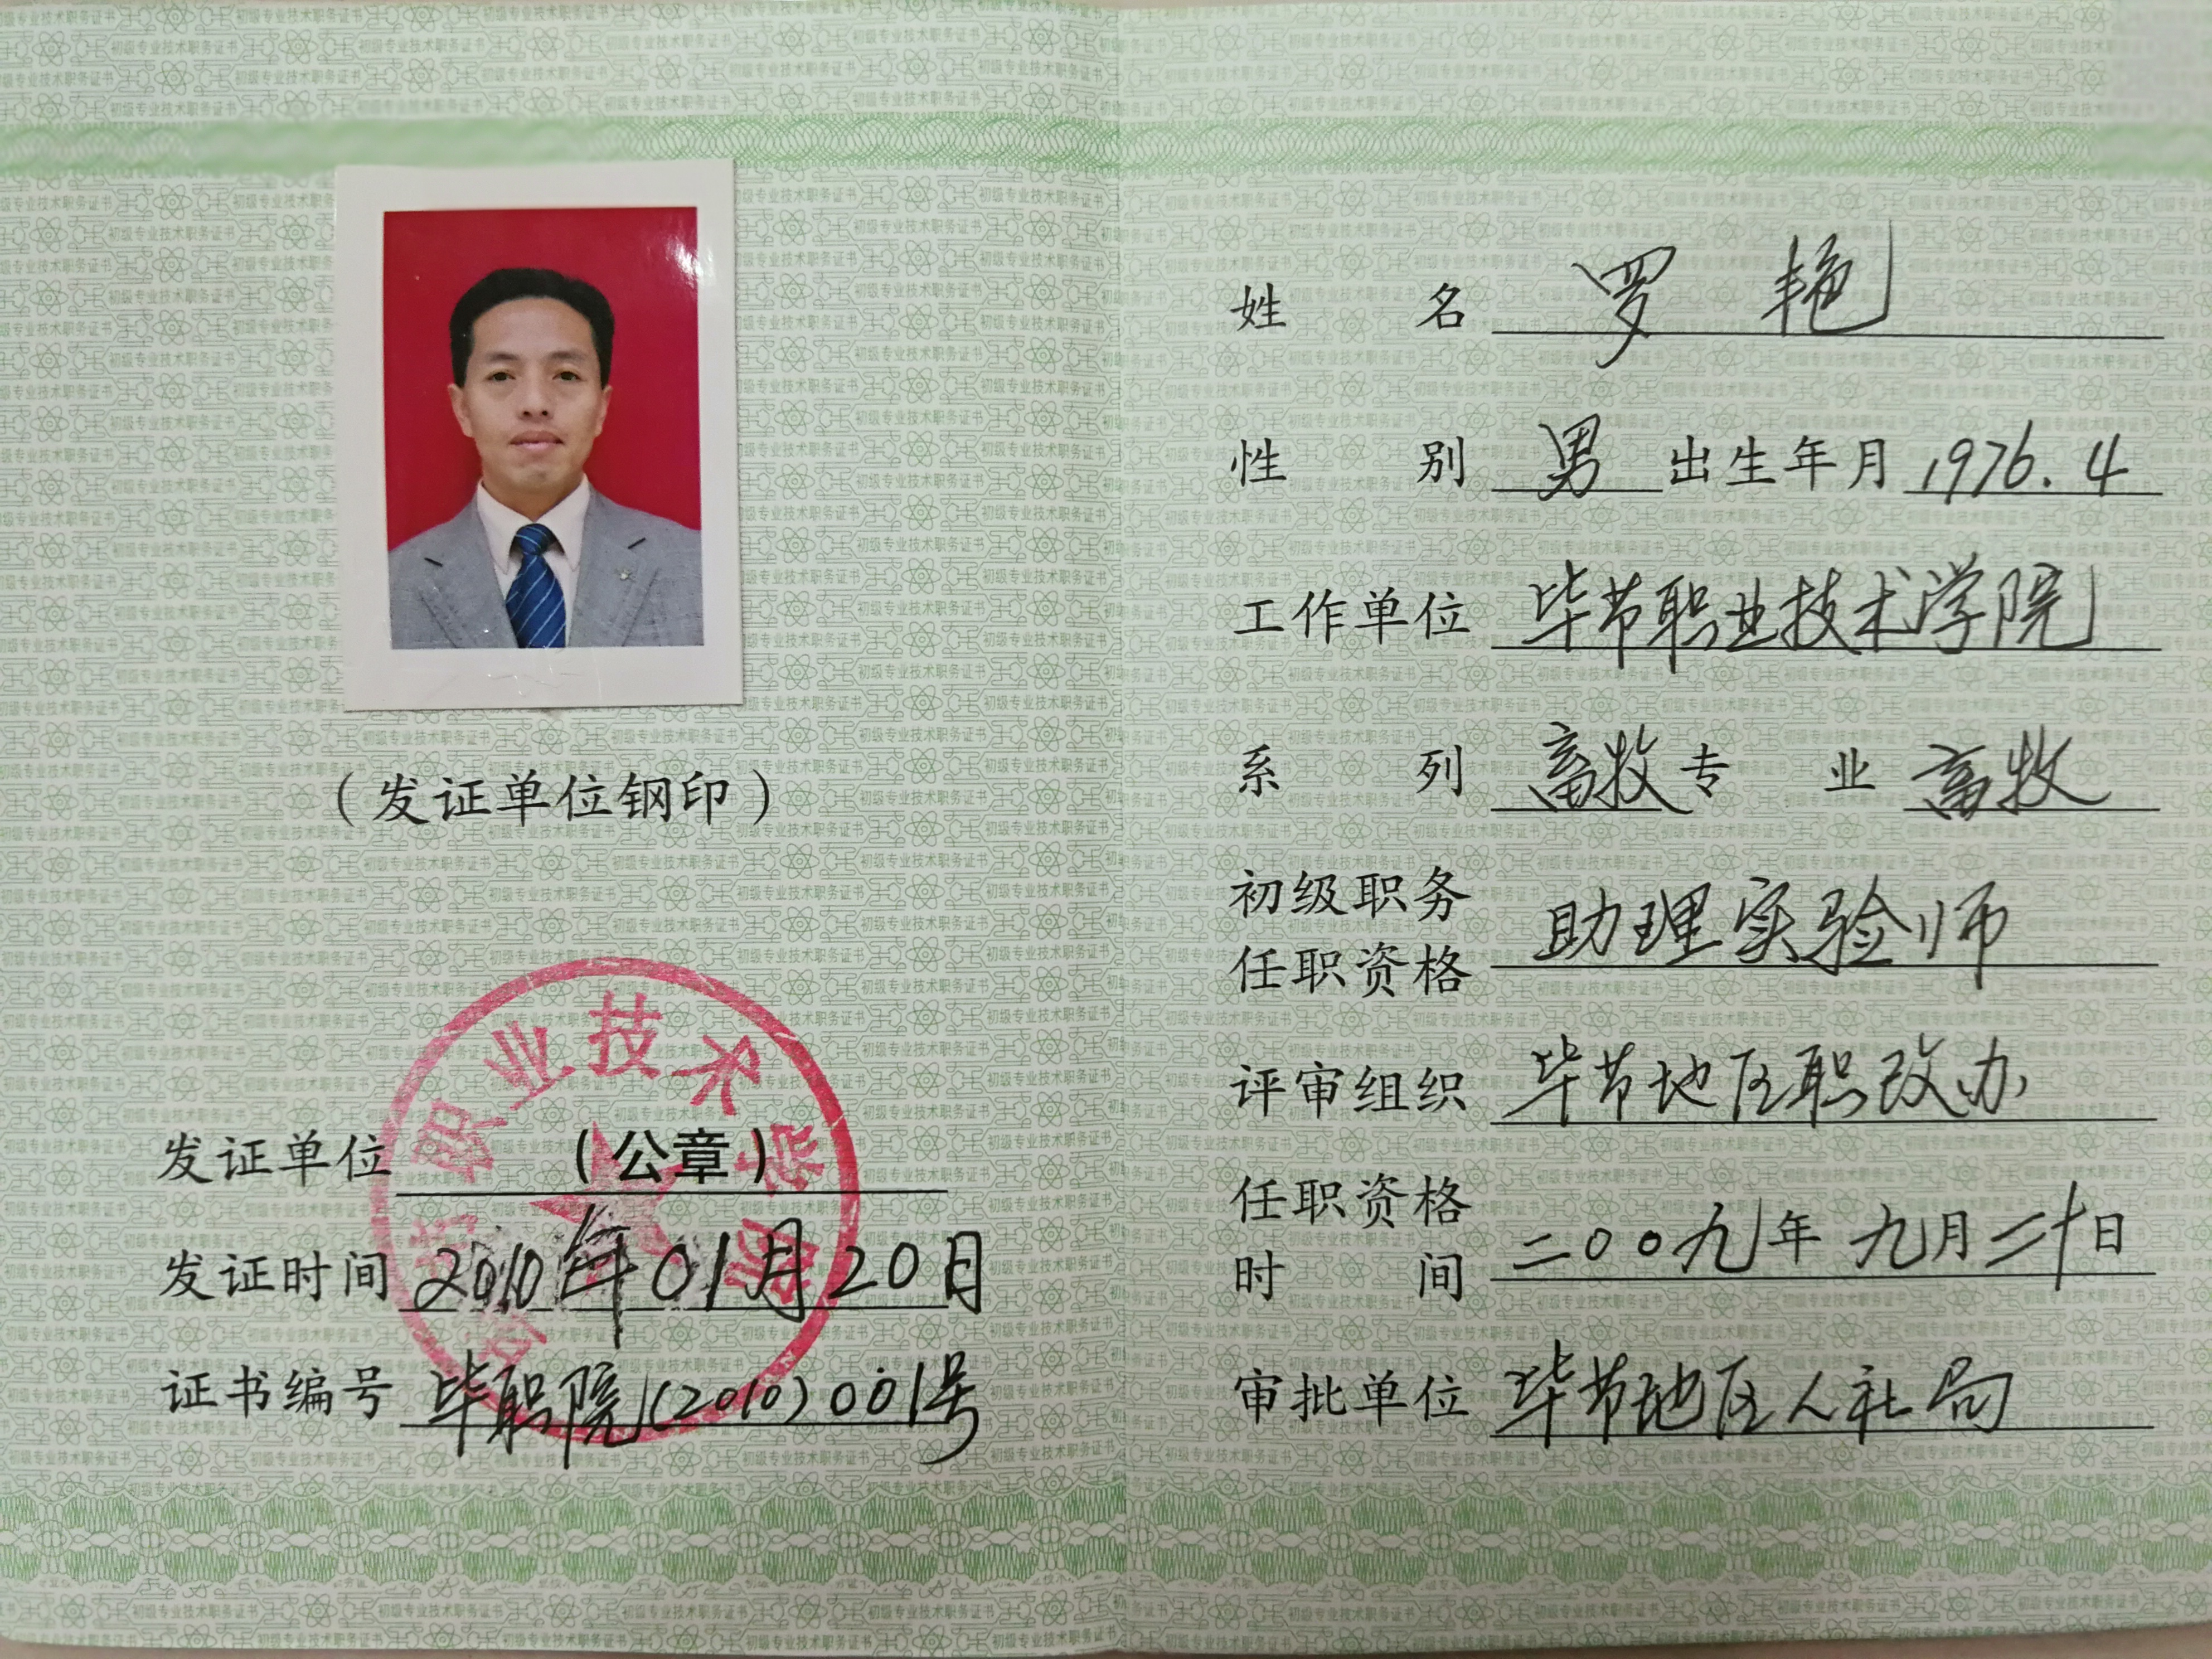 （发证单位钢印）
毕节职业技术学院
发证单位（公章）
发证时间 2010年01月20日
证书编号 毕职院(2010)001号
姓名 罗艳
性别 男 出生年月 1976.4
工作单位 毕节职业技术学院
系列 畜牧 专业 畜牧
初级职务
任职资格 助理实验师
评审组织 毕节地区职改办
任职资格
时间 二00九年九月二十日
审批单位 毕节地区人社局
初级专业技术职务证书